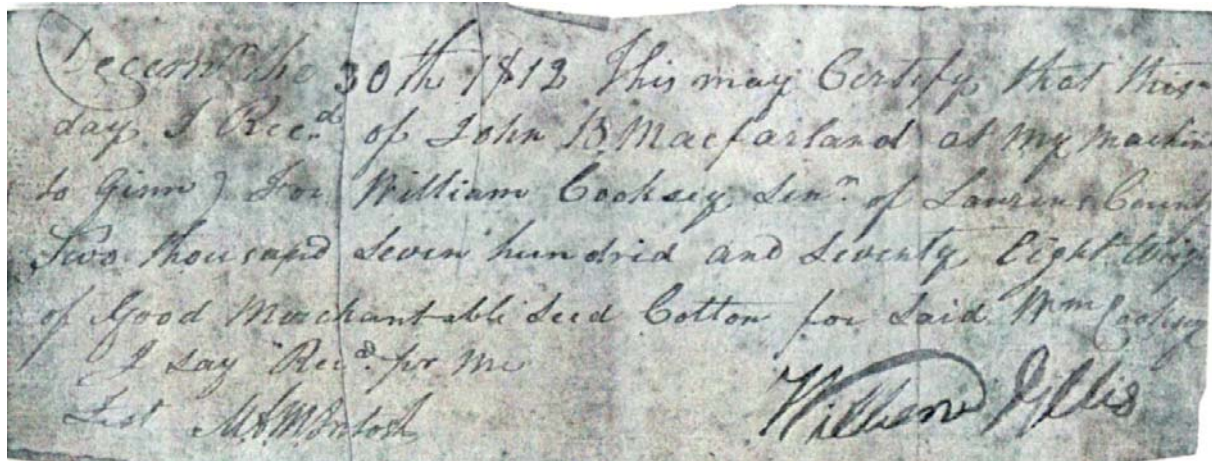 Decemr. the 30th 1812 This may Certify that this
day I Recd. of John B Macfarland at my machin
to Ginn) For William Cooksey Senr. of Laurens County
Two thousand Seven hundrid and Seventy Eight Weig
of Good Merchantable Seed Cotton for Said Wm Cooksey
I say Recd. for me
Test
William Gillis